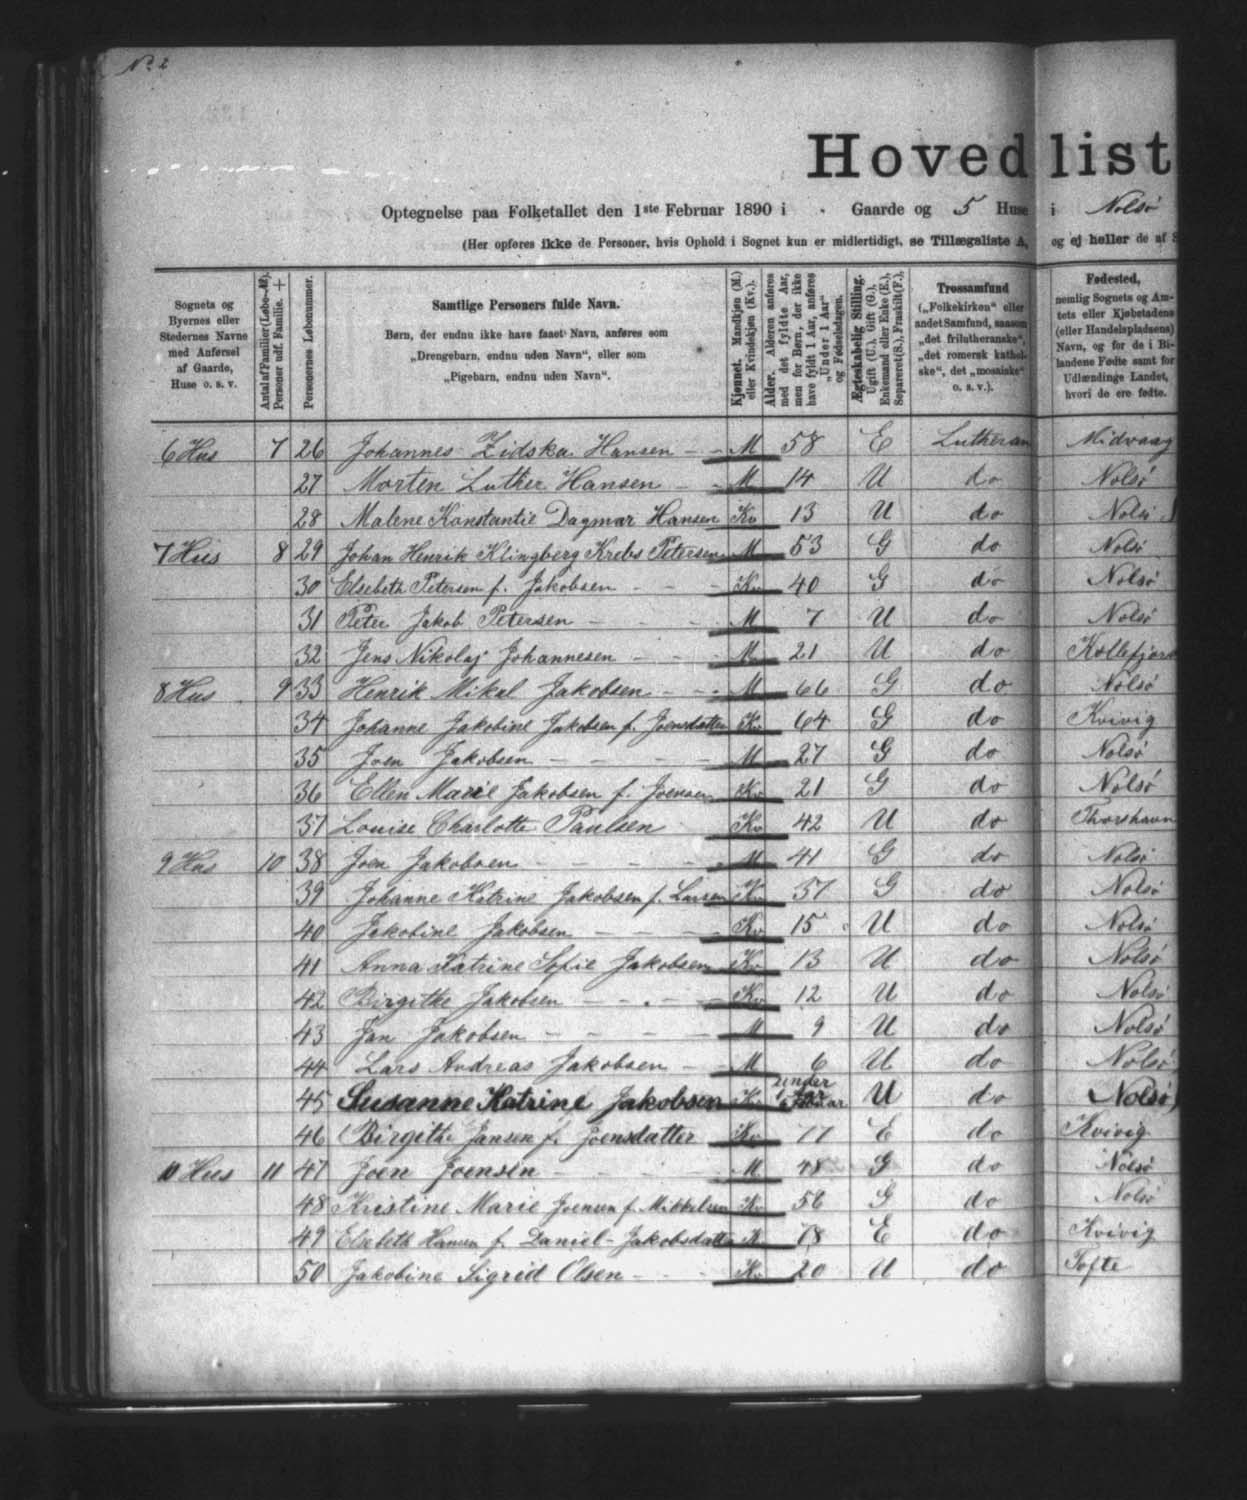 No 2
Hovedlist
Optegnelse paa Folketallet den 1ste Februar 1890 i . Gaarde og 5 Huse i Nolsö
(Her opføres ikke de Personer, hvis Ophold i Sognet kun er midlertidigt, se Tillægsliste A, og ej heller de af S
Sognets og Byernes eller Stedernes Navne med Anførsel af Gaarde, Huse o. s. v.
Antal af Familier (Løbe-№). Personer udf. Familie. +
Personernes Løbenummer.
Samtlige Personers fulde Navn.
Børn, der endnu ikke have faaet Navn, anføres som
„Drengebarn, endnu uden Navn", eller som
„Pigebarn, endnu uden Navn".
Kjønnet. Mandkjøn (M.) eller Kvindekjøn (Kv.).
Alder. Alderen anføres med det fyldte Aar, men for Børn, der ikke have fyldt 1 Aar, anføres „Under 1 Aar" og Fødselsdagen.
Ægteskabelig Stilling. Ugift (U.), Gift (G.), Enkemand eller Enke (E.), Separeret (S.), Fraskilt (F.).
Trossamfund („Folkekirken" eller andet Samfund, saasom „det frilutheranske", „det romersk katholske", det „mosaiske" o. s. v.).
Fødested, nemlig Sognets og Amtets eller Kjøbstadens (eller Handelspladsens) Navn, og for de i Bilandene Fødte samt for Udlændinge Landet, hvori de ere fødte.
6 Hus 7 26 Johannes Zidska Hansen - - M 58 E Lutheran Midvaag
27 Morten Luther Hansen - - M 14 U do Nolsö
28 Malene Konstantie Dagmar Hansen Kv 13 U do Nolsö
7 Hus 8 29 Johan Henrik Klingberg Krebs Petersen M 53 G do Nolsö
30 Elsebeth Petersen f. Jakobsen - - - Kv 40 G do Nolsö
31 Peter Jakob Petersen - - - - M 7 U do Nolsö
32 Jens Nikolaj Johannesen - - - M 21 U do Kollefjord
8 Hus 9 33 Henrik Mikal Jakobsen - - - M 66 G do Nolsö
34 Johanne Jakobine Jakobsen f. Joensdatter Kv 64 G do Kvivig
35 Joen Jakobsen - - - - M 27 G do Nolsö
36 Ellen Marie Jakobsen f. Joensen Kv 21 G do Nolsö
37 Louise Charlotte Paulsen Kv 42 U do Thorshavn
9 Hus 10 38 Joen Jakobsen - - - - - M 41 G do Nolsö
39 Johanne Katrine Jakobsen f. Larsen Kv 37 G do Nolsö
40 Jakobine Jakobsen - - - - Kv 15 U do Nolsö
41 Anna Katrine Sofie Jakobsen Kv 13 U do Nolsö
42 Birgithe Jakobsen - - . - - Kv 12 U do Nolsö
43 Jan Jakobsen - - - - M 9 U do Nolsö
44 Lars Andreas Jakobsen - - M 6 U do Nolsö
45 Susanne Katrine Jakobsen Kv under 1 Aar U do Nolsö
46 Birgithe Jansen f. Joensdatter Kv 77 E do Kvivig
10 Hus 11 47 Joen Joensen - - - - M 48 G do Nolsö
48 Kristine Marie Joensen f. Mikkelsen Kv 56 G do Nolsö
49 Elsebeth Hansen f. Daniel-Jakobsdatter K 78 E do Kvivig
50 Jakobine Sigrid Olsen - - - Kv 20 U do Tofte